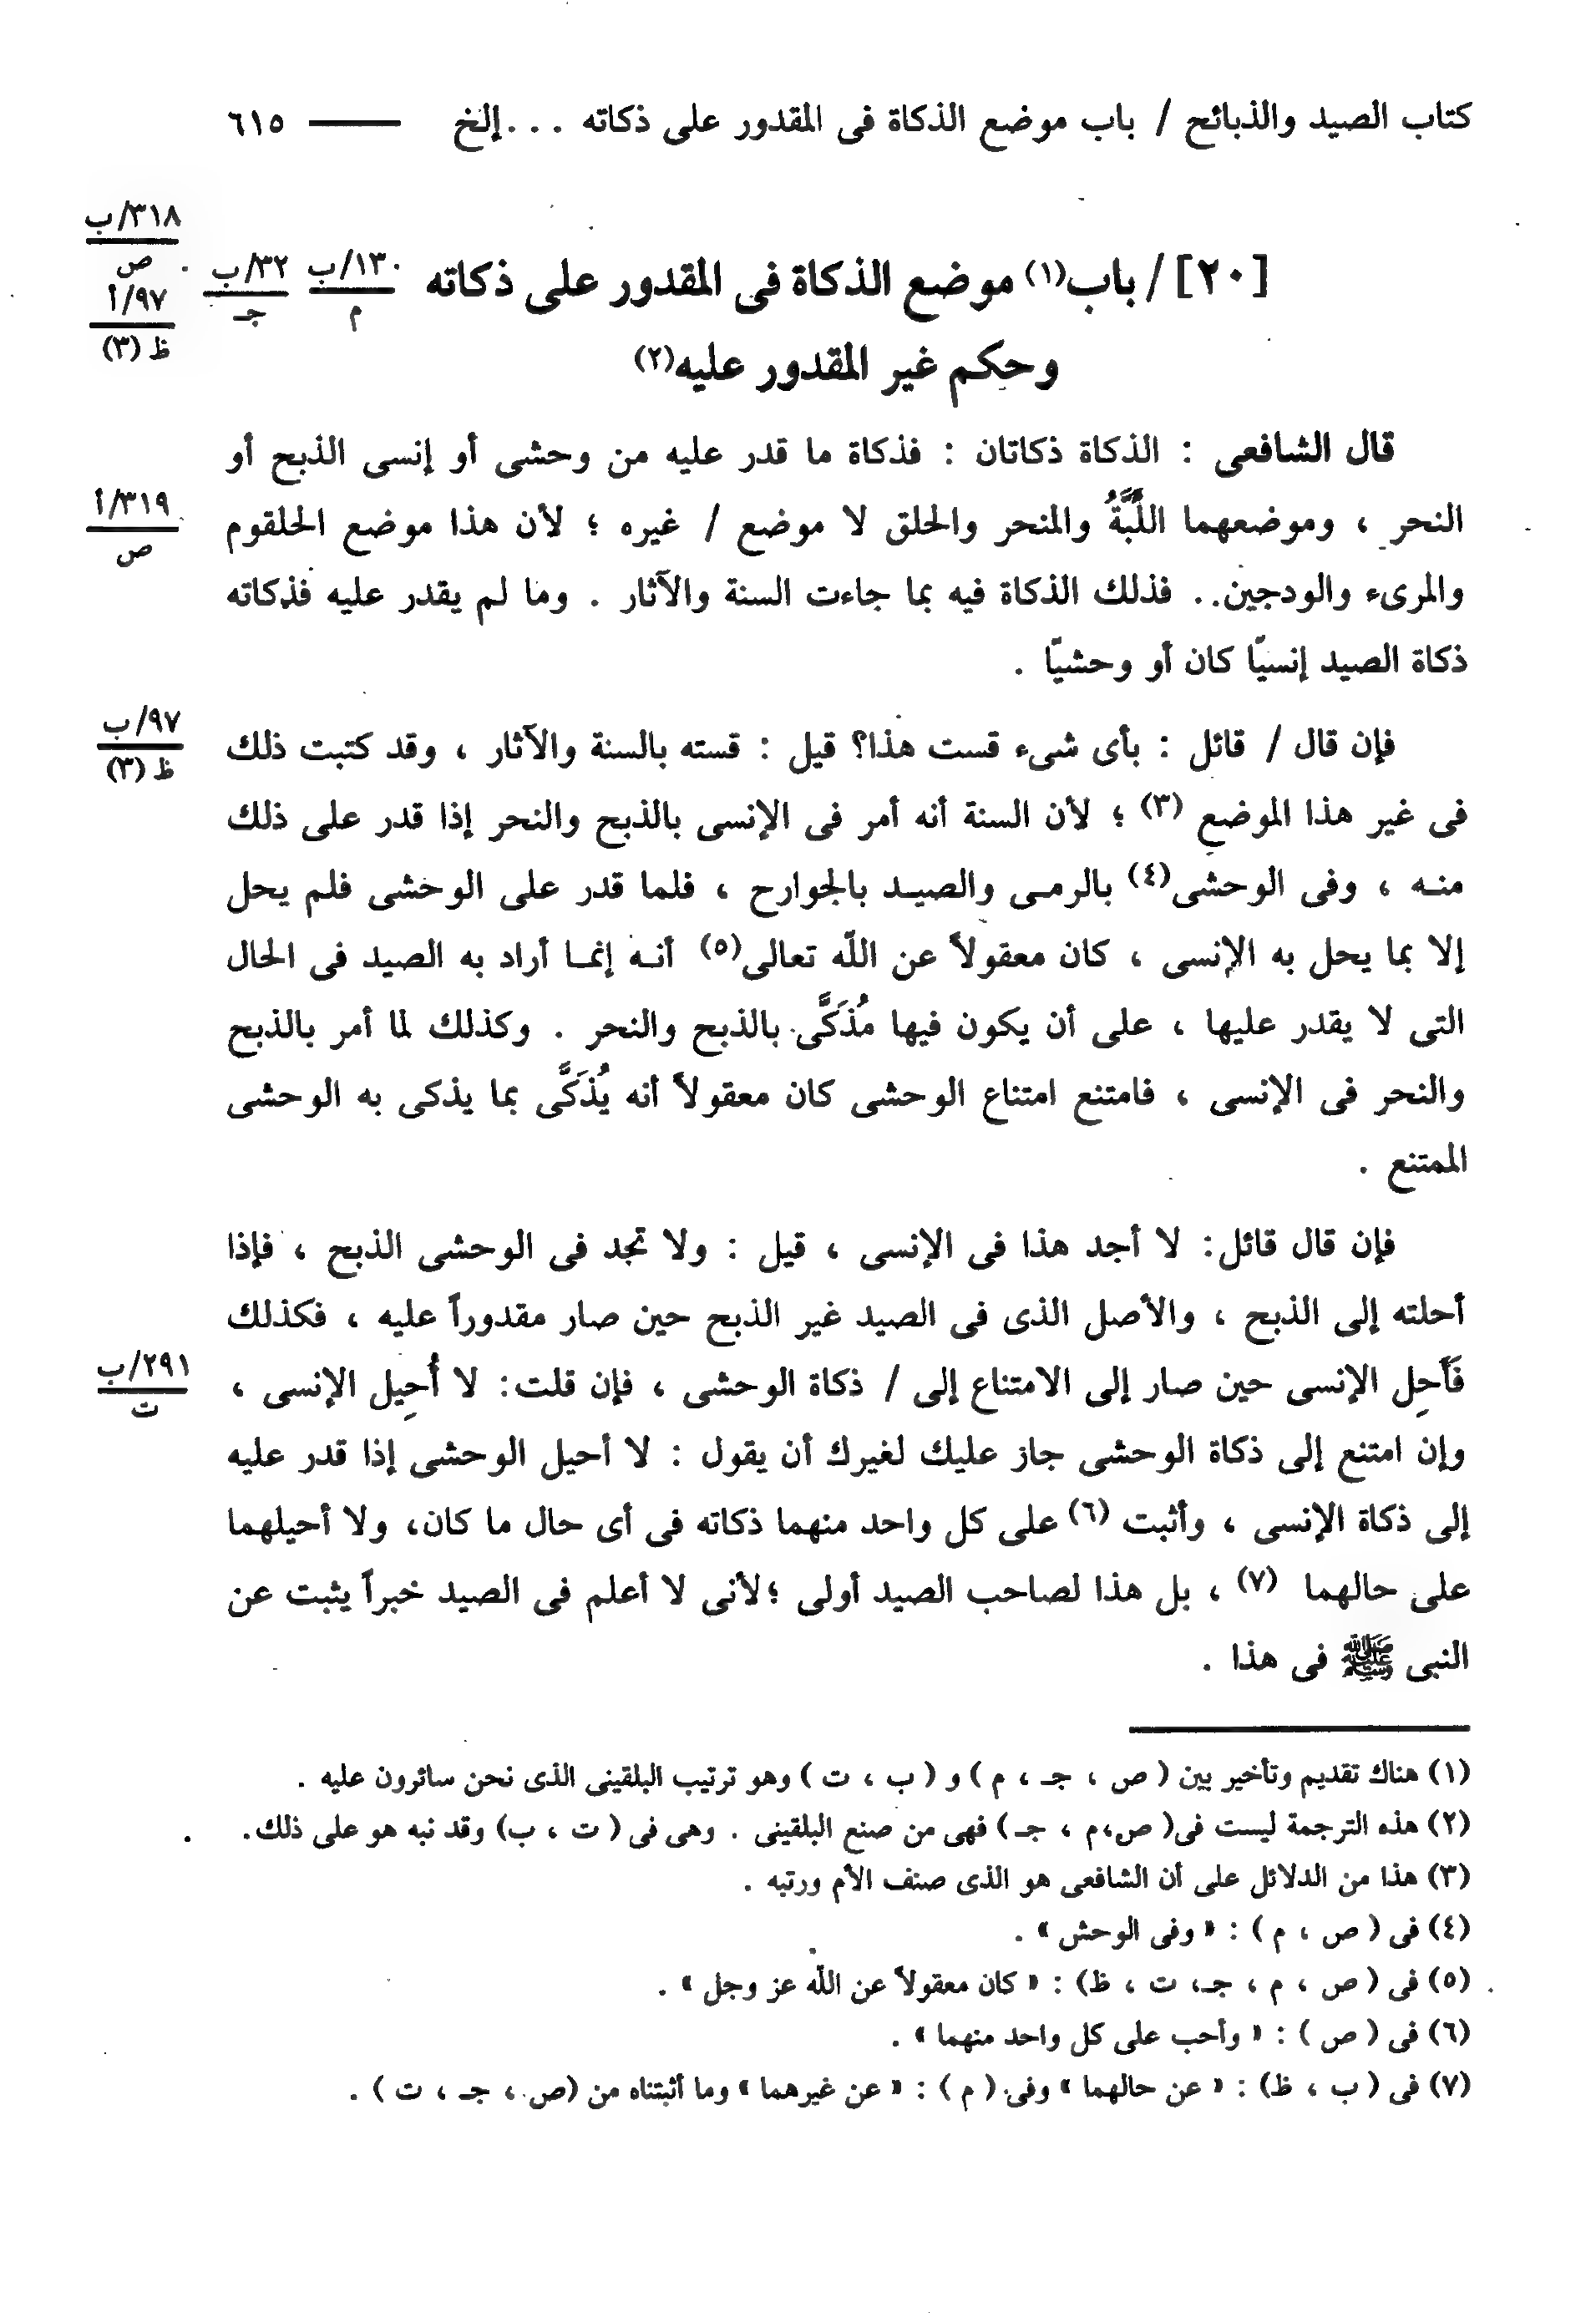 كتاب الصيد والذبائح / باب موضع الذكاة فى المقدور على ذكاته . . . إلخ ــــــ ٦١٥
٣١٨/ب
ص
[٢٠] / باب(١) موضع الذكاة فى المقدور على ذكاته
١٣٠/ب
م
٣٢/ب
جـ
٩٧/أ
ظ (٣)
وحكم غير المقدور عليه(٢)
قال الشافعى : الذكاة ذكاتان : فذكاة ما قدر عليه من وحشى أو إنسى الذبح أو
النحر ، وموضعهما اللَّبَّةُ والمنحر والحلق لا موضع / غيره ؛ لأن هذا موضع الحلقوم
٣١٩/أ
ص
والمرىء والودجين . . فذلك الذكاة فيه بما جاءت السنة والآثار . وما لم يقدر عليه فذكاته
ذكاة الصيد إنسيّا كان أو وحشيّا .
فإن قال / قائل : بأى شىء قست هذا؟ قيل : قسته بالسنة والآثار ، وقد كتبت ذلك
٩٧/ب
ظ (٣)
فى غير هذا الموضع (٣) ؛ لأن السنة أنه أمر فى الإنسى بالذبح والنحر إذا قدر على ذلك
منـه ، وفى الوحشى(٤) بالرمـى والصيـد بالجوارح ، فلما قدر على الوحشى فلم يحل
إلا بما يحل به الإنسى ، كان معقولاً عن اللّه تعالى(٥) أنـه إنمـا أراد به الصيد فى الحال
التى لا يقدر عليها ، على أن يكون فيها مُذَكَّى بالذبح والنحر . وكذلك لما أمر بالذبح
والنحر فى الإنسى ، فامتنع امتناع الوحشى كان معقولاً أنه يُذَكَّى بما يذكى به الوحشى
الممتنع .
فإن قال قائل: لا أجد هذا فى الإنسى ، قيل : ولا تجد فى الوحشى الذبح ، فإذا
أحلته إلى الذبح ، والأصل الذى فى الصيد غير الذبح حين صار مقدوراً عليه ، فكذلك
فَأَحِل الإنسى حين صار إلى الامتناع إلى / ذكاة الوحشى ، فإن قلت: لا أُحِيل الإنسى ،
٢٩١/ب
ت
وإن امتنع إلى ذكاة الوحشى جاز عليك لغيرك أن يقول : لا أحيل الوحشى إذا قدر عليه
إلى ذكاة الإنسى ، وأثبت (٦) على كل واحد منهما ذكاته فى أى حال ما كان، ولا أحيلهما
على حالهما (٧) ، بل هذا لصاحب الصيد أولى ؛لأنى لا أعلم فى الصيد خبراً يثبت عن
النبى ﷺ فى هذا .
(١) هناك تقديم وتأخير بين ( ص ، جـ ، م ) و ( ب ، ت ) وهو ترتيب البلقينى الذى نحن سائرون عليه .
(٢) هذه الترجمة ليست فى( ص،م ، جـ ) فهى من صنع البلقينى . وهى فى ( ت ، ب) وقد نبه هو على ذلك.
(٣) هذا من الدلائل على أن الشافعى هو الذى صنف الأم ورتبه .
(٤) فى ( ص ، م ) : « وفى الوحش » .
(٥) فى ( ص ، م ، جـ، ت ، ظ) : « كان معقولاً عن اللّه عز وجل » .
(٦) فى ( ص ) : « وأحب على كل واحد منهما » .
(٧) فى ( ب ، ظ) : « عن حالهما » وفى ( م ) : « عن غيرهما » وما أثبتناه من (ص ، جـ ، ت ) .